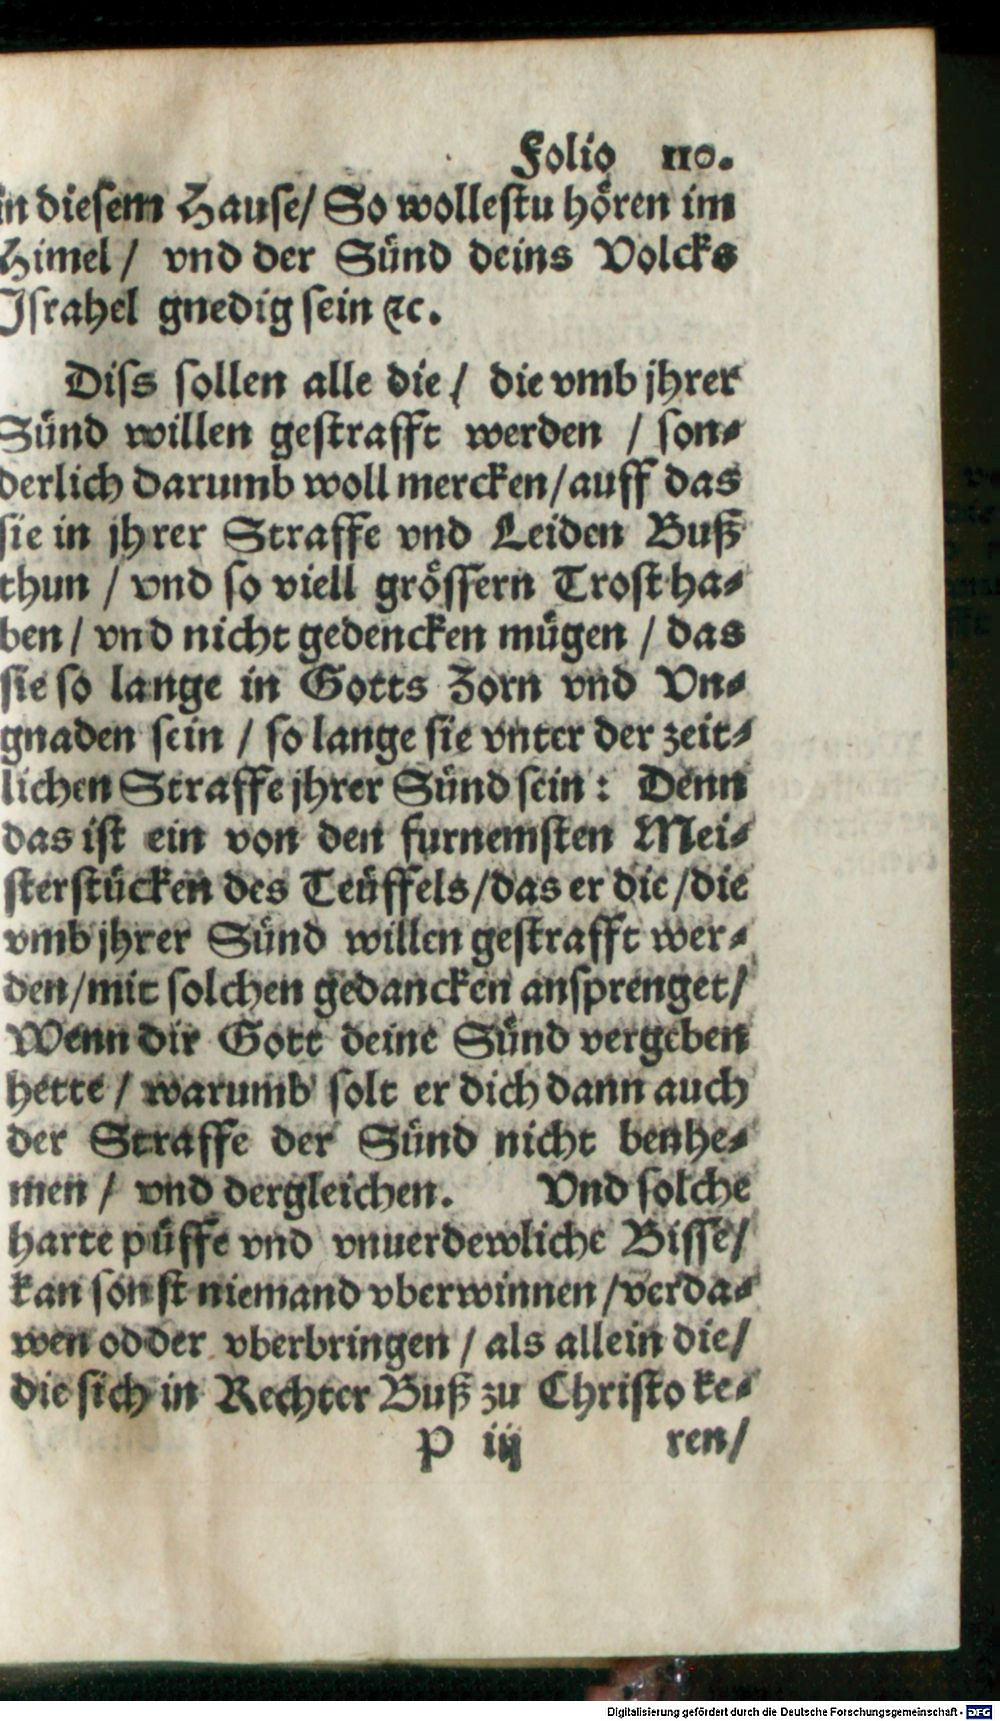 Folio 110.
in diesem Hause/ So wollestu hören im
Himel / vnd der Sünd deins Volcks
Israhel gnedig sein ꝛc.
Diss sollen alle die / die vmb jhrer
Sünd willen gestrafft werden / son-
derlich darumb woll mercken/auff das
sie in jhrer Straffe vnd Leiden Buß
thun / vnd so viell grössern Trost ha-
ben / vnd nicht gedencken mügen / das
sie so lange in Gotts Zorn vnd Vn-
gnaden sein / so lange sie vnter der zeit-
lichen Straffe jhrer Sünd sein : Denn
das ist ein von den furnemsten Mei-
sterstücken des Teüffels/das er die/die
vmb jhrer Sünd willen gestrafft wer-
den/mit solchen gedancken ansprenget/
Wenn dir Gott deine Sünd vergeben
hette / warumb solt er dich dann auch
der Straffe der Sünd nicht benhe-
men / vnd dergleichen. Vnd solche
harte püffe vnd vnuerdewliche Bisse/
kan sonst niemand vberwinnen /verda-
wen odder vberbringen / als allein die/
die sich in Rechter Buß zu Christo ke-
P iij ren/
Digitalisierung gefördert durch die Deutsche Forschungsgemeinschaft - DFG